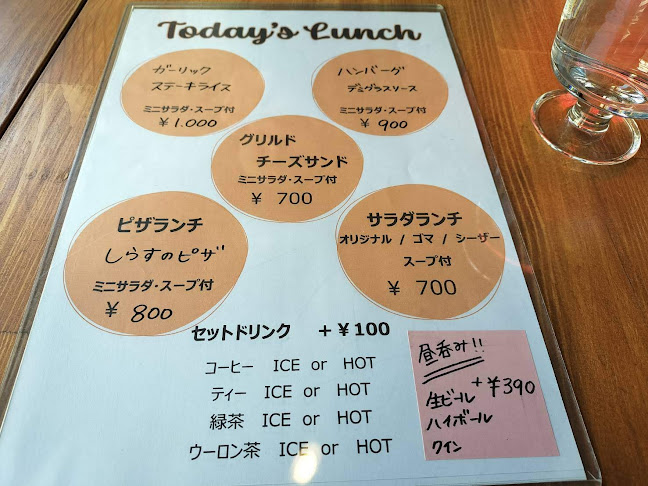 Today's Lunch
ガーリック
ステーキライス
ミニサラダ・スープ付
¥1.000
ハンバーグ
デミグラスソース
ミニサラダ・スープ付
¥ 900
グリルド
チーズサンド
ミニサラダ・スープ付
¥ 700
ピザランチ
しらすのピザ
ミニサラダ・スープ付
¥ 800
サラダランチ
オリジナル / ゴマ / シーザー
スープ付
¥ 700
セットドリンク +¥100
コーヒー ICE or HOT
ティー ICE or HOT
緑茶 ICE or HOT
ウーロン茶 ICE or HOT
昼呑み!!
+¥390
生ビール
ハイボール
ワイン